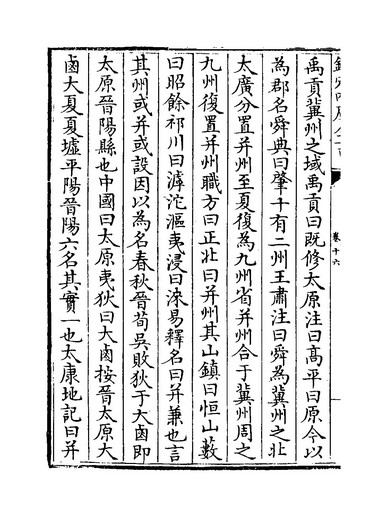 禹貢冀州之域禹貢曰既修太原注曰髙平曰原今以
為郡名舜典曰肇十有二州王肅注曰舜為冀州之北
太廣分置并州至夏復為九州省并州合于冀州周之
九州復置并州職方曰正北曰并州其山鎮曰恒山藪
曰昭餘祁川曰滹沱漚夷浸曰淶易釋名曰并兼也言
其州或并或設因以為名春秋晉荀吳敗狄于大鹵即
太原晉陽縣也中國曰太原夷狄曰大鹵按晉太原大
鹵大夏夏墟平陽晉陽六名其實一也太康地記曰并
卷十六